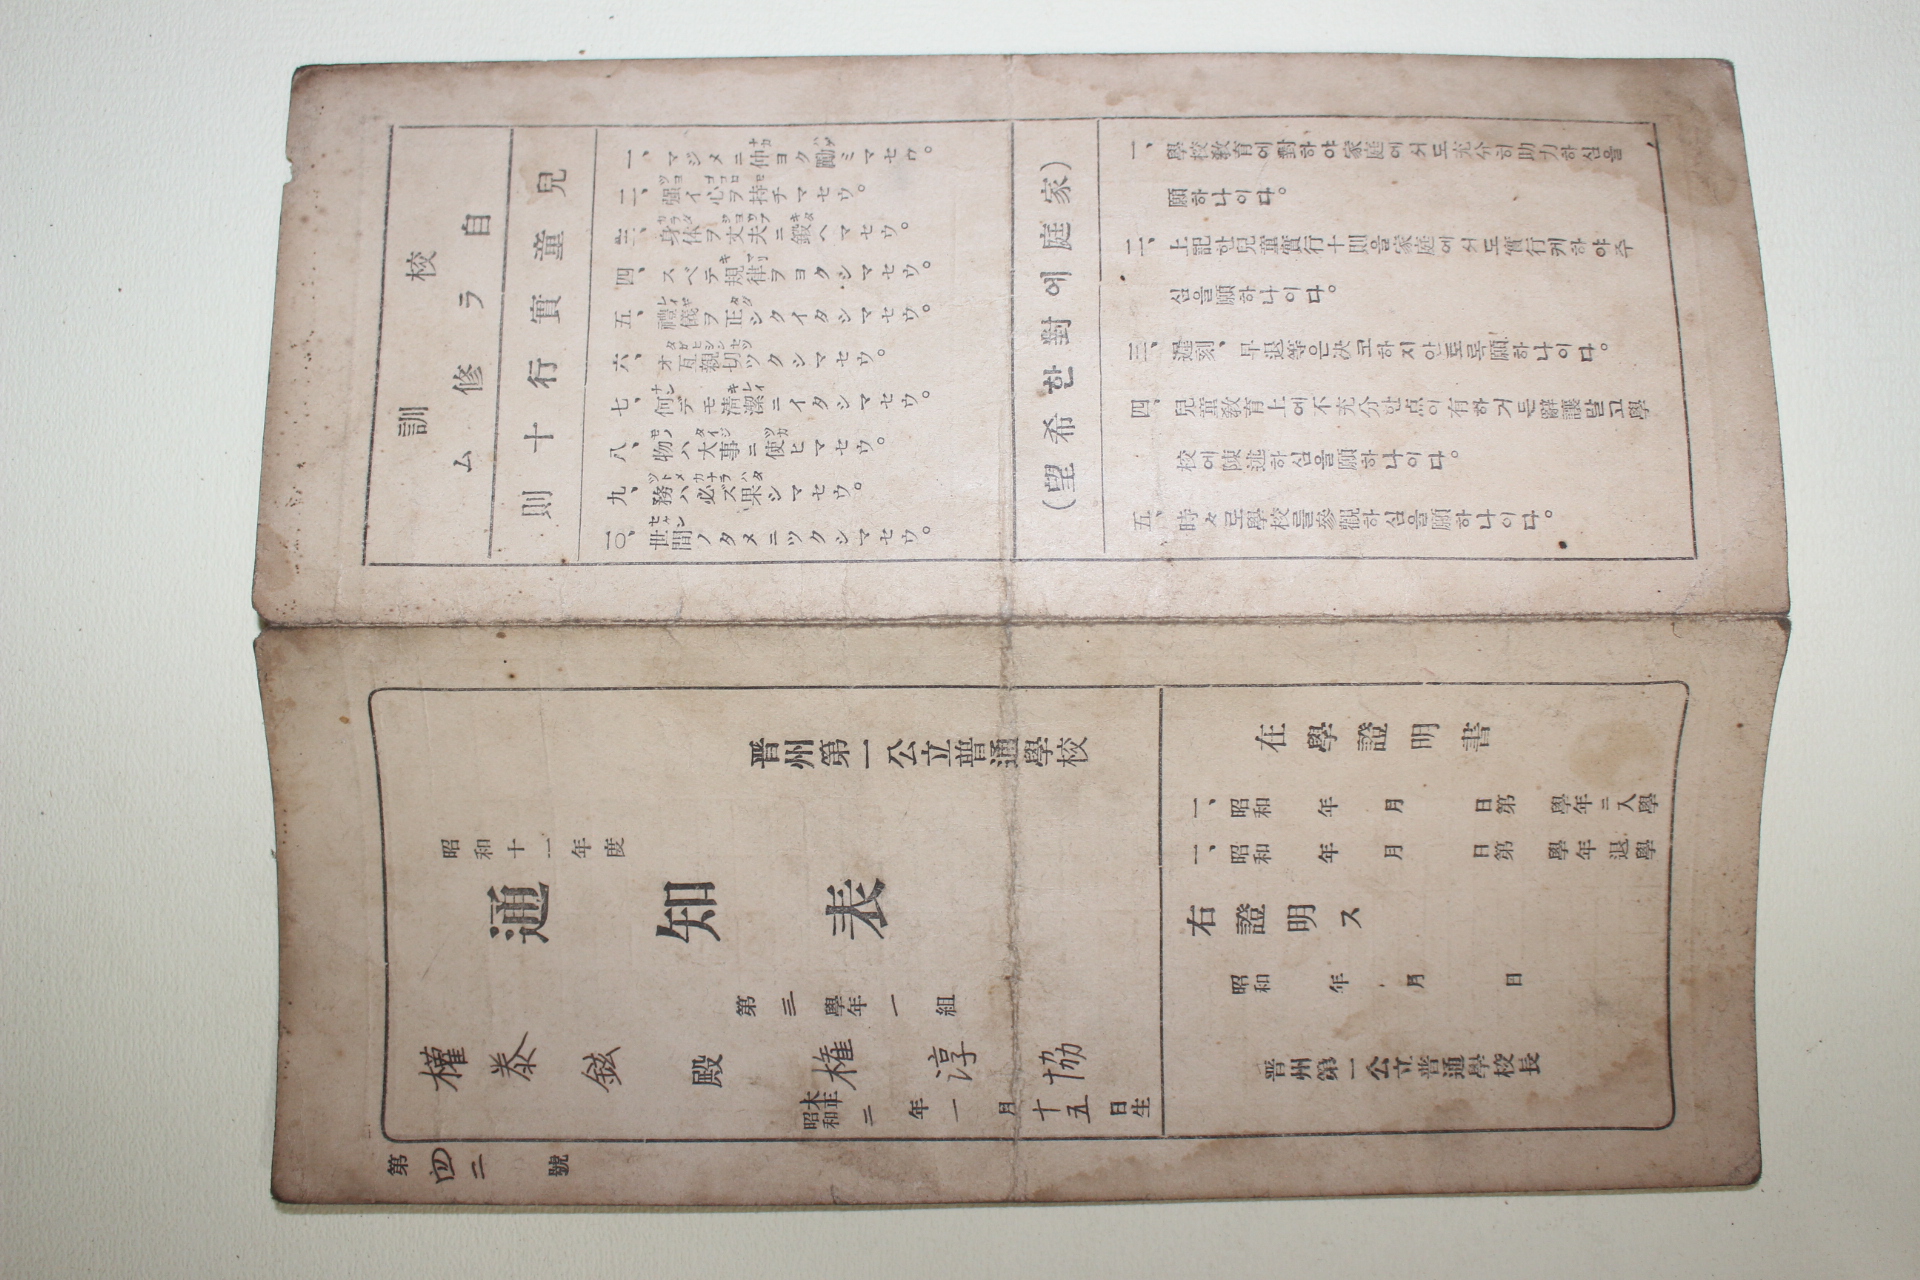 校訓
自ラ修ム
兒童實行十則
一、マジメニ仲ヨク勵ミマセウ。
二、强イ心ヲ持チマセウ。
三、身体ヲ丈夫ニ鍛ヘマセウ。
四、スベテ規律ヲヨクシマセウ。
五、禮儀ヲ正シクイタシマセウ。
六、オ互親切ツクシマセウ。
七、何デモ清潔ニイタシマセウ。
八、物ハ大事ニ使ヒマセウ。
九、務ハ必ズ果シマセウ。
一〇、世間ノタメニツクシマセウ。
(家庭에對한希望)
一、學校敎育에對하야家庭에서도充分히助力하심을
願하나이다。
二、上記한兒童實行十則을家庭에서도實行케하야주
심을願하나이다。
三、遲刻、早退等은決코하지안토록願하나이다。
四、兒童敎育上에不充分한点이有하거든辭讓말고學
校에陳述하심을願하나이다。
五、時々로學校를參觀하심을願하나이다。
晋州第一公立普通學校
昭和十一年度
通知表
第三學年一組
權泰鉉殿
権淳協
大正
昭和
二年一月十五日生
第四二號
在學證明書
一、昭和 年 月 日第 學年ニ入學
一、昭和 年 月 日第 學年退學
右證明ス
昭和 年 月 日
晋州第一公立普通學校長